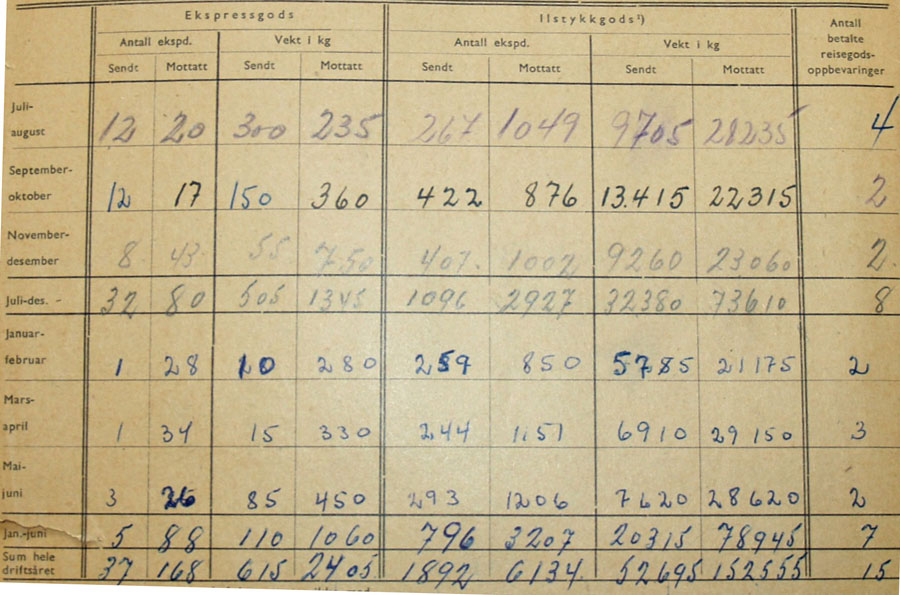 Ekspressgods Ilstykkgods¹) Antall betalte reisegods-oppbevaringer
Antall ekspd. Vekt i kg Antall ekspd. Vekt i kg
Sendt Mottatt Sendt Mottatt Sendt Mottatt Sendt Mottatt
Juli-
august 12 20 300 235 267 1049 9705 21235 4
September-
oktober 12 17 150 360 422 876 13.415 22315 2
November-
desember 8 43 55 750 407 1002 9260 23060 2
Juli-des. - 32 80 505 1345 1096 2927 32380 73610 8
Januar-
februar 1 28 10 280 259 850 5785 21175 2
Mars-
april 1 34 15 330 244 1151 6910 29150 3
Mai-
juni 3 26 85 450 293 1206 7620 28620 2
Jan.-juni 5 88 110 1060 796 3207 20315 78945 7
Sum hele
driftsåret 37 168 615 2405 1892 6134 52695 152555 15